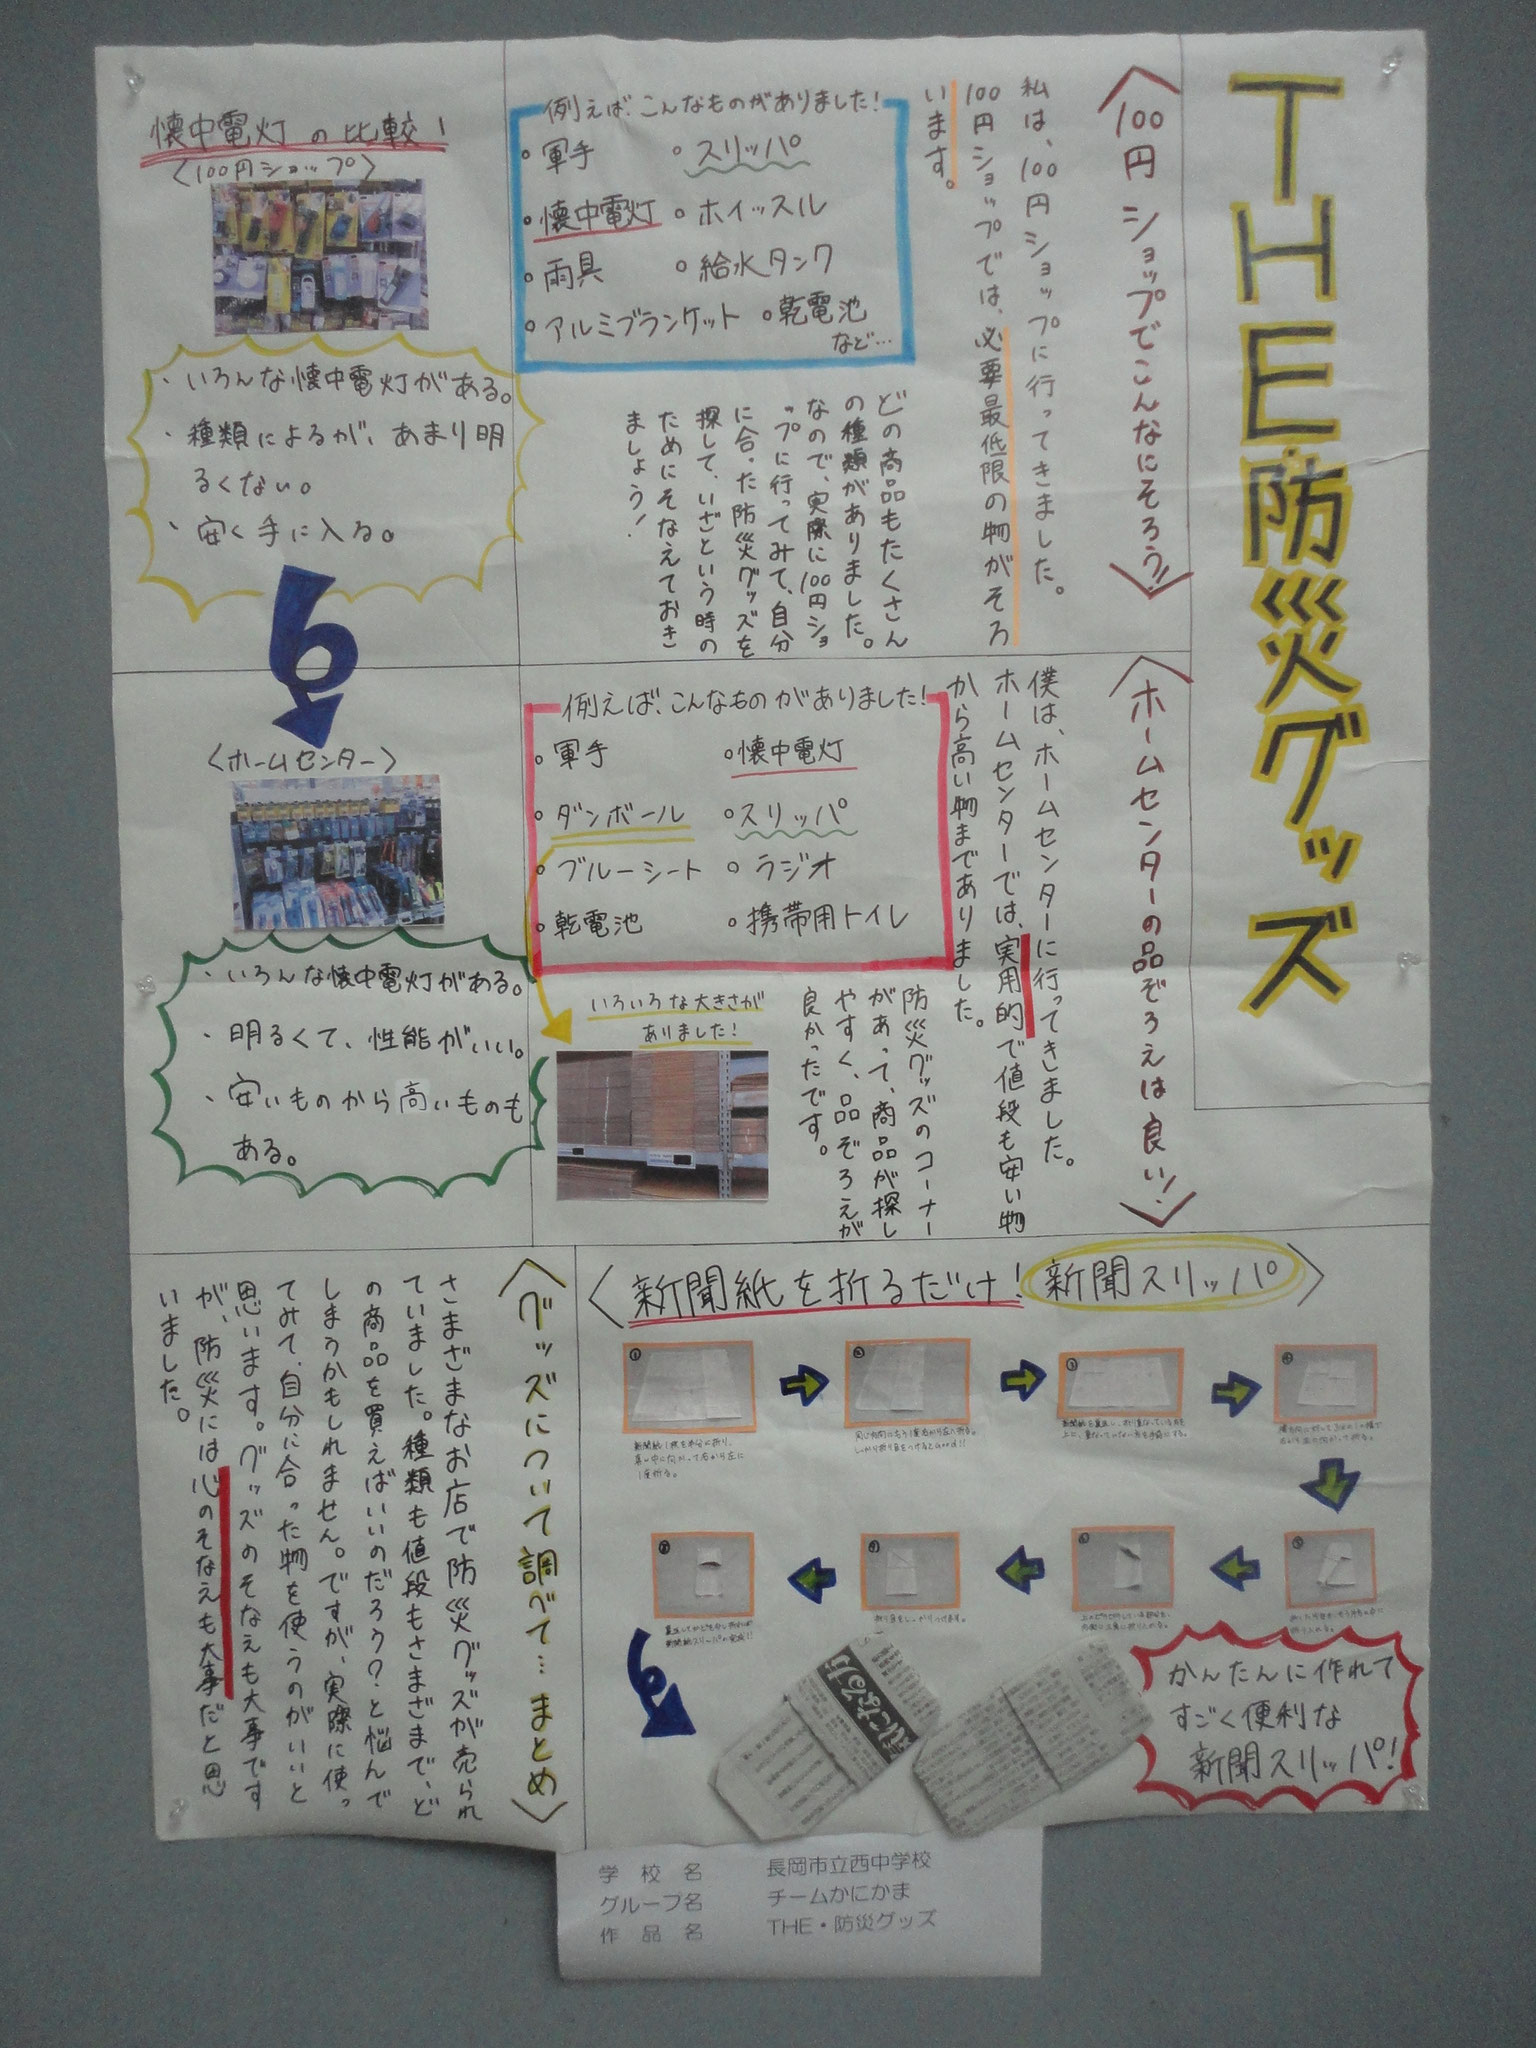 THE・防災グッズ
〈100円ショップでこんなにそろう!!〉
私は、100円ショップに行ってきました。
100円ショップでは、必要最低限の物がそろ
います。
例えば、こんなものがありました!
・軍手
・スリッパ
・懐中電灯
・ホイッスル
・雨具
・給水タンク
・アルミブランケット
・乾電池
など…
どの商品もたくさん
の種類がありました。
なので、実際に100円ショ
ップに行ってみて、自分
に合った防災グッズを
探して、いざという時の
ためにそなえておき
ましょう!
懐中電灯の比較!
〈100円ショップ〉
・いろんな懐中電灯がある。
・種類によるが、あまり明
るくない。
・安く手に入る。
〈ホームセンター〉
・いろんな懐中電灯がある。
・明るくて、性能がいい。
・安いものから高いものも
ある。
〈ホームセンターの品ぞろえは良い!〉
僕は、ホームセンターに行ってきました。
ホームセンターでは、実用的で値段も安い物
から高い物までありました。
例えば、こんなものがありました!
・軍手
・懐中電灯
・ダンボール
・スリッパ
・ブルーシート
・ラジオ
・乾電池
・携帯用トイレ
いろいろな大きさが
ありました!
防災グッズのコーナー
があって、商品が探し
やすく、品ぞろえが
良かったです。
〈新聞紙を折るだけ!新聞スリッパ〉
①
②
③
④
新聞紙1枚を半分に折り、
真ん中に向かって右から左に
1度折る。
同じ方向にもう1度右から左へ折る。
しっかり折り目をつけるとGood!!
⑤
⑥
⑦
⑧
折り目をしっかりつけます。
かんたんに作れて
すごく便利な
新聞スリッパ!
〈グッズについて調べて…まとめ〉
さまざまなお店で防災グッズが売られ
ていました。種類も値段もさまざまで、ど
の商品を買えばいいのだろう?と悩んで
しまうかもしれません。ですが、実際に使っ
てみて、自分に合った物を使うのがいいと
思います。グッズのそなえも大事です
が、防災には心のそなえも大事だと思
いました。
学校名 長岡市立西中学校
グループ名 チームかにかま
作品名 THE・防災グッズ